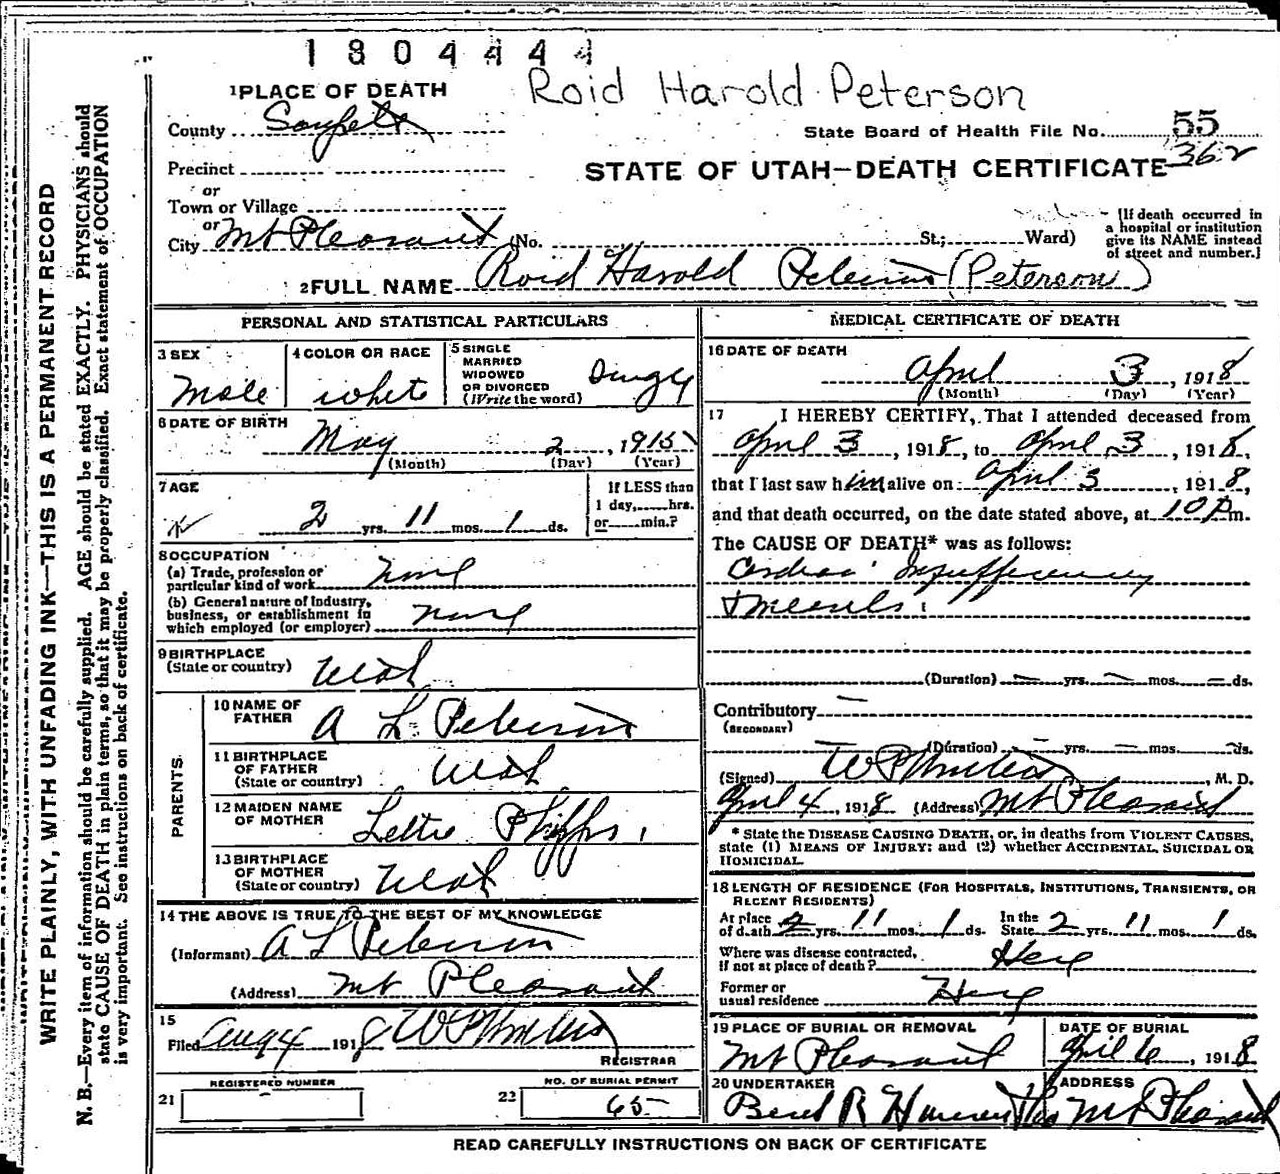 1804444
Roid Harold Peterson
1 PLACE OF DEATH
County Sanpete
State Board of Health File No. 55
362
Precinct
STATE OF UTAH—DEATH CERTIFICATE
or
Town or Village
or
City Mt Pleasant (No. St.; Ward)
[If death occurred in
a hospital or institution
give its NAME instead
of street and number.]
2 FULL NAME Roid Harold Peterson (Peterson)
PERSONAL AND STATISTICAL PARTICULARS
3 SEX
Male
4 COLOR OR RACE
white
5 SINGLE
MARRIED
WIDOWED
OR DIVORCED
(Write the word)
Single
6 DATE OF BIRTH
May 2, 1915
(Month) (Day) (Year)
7 AGE
2 yrs. 11 mos. 1 ds.
If LESS than
1 day, hrs.
or min.?
8 OCCUPATION
(a) Trade, profession or
particular kind of work none
(b) General nature of Industry,
business, or establishment in
which employed (or employer) none
9 BIRTHPLACE
(State or country) Utah
PARENTS.
10 NAME OF
FATHER A L Peterson
11 BIRTHPLACE
OF FATHER
(State or country) Utah
12 MAIDEN NAME
OF MOTHER Lettie Phipps
13 BIRTHPLACE
OF MOTHER
(State or country) Utah
14 THE ABOVE IS TRUE TO THE BEST OF MY KNOWLEDGE
(Informant) A L Peterson
(Address) Mt Pleasant
15
Filed Aug 4 1918
REGISTRAR
REGISTERED NUMBER
21
NO. OF BURIAL PERMIT
22 65
MEDICAL CERTIFICATE OF DEATH
16 DATE OF DEATH
April 3, 1918
(Month) (Day) (Year)
17 I HEREBY CERTIFY, That I attended deceased from
April 3, 1918, to April 3, 1918,
that I last saw him alive on April 3, 1918,
and that death occurred, on the date stated above, at 10 Pm.
The CAUSE OF DEATH* was as follows:
Cardiac Insufficiency
+ measels.
(Duration) yrs. mos. ds.
Contributory
(SECONDARY)
(Duration) yrs. mos. ds.
(Signed) M. D.
April 4, 1918 (Address) Mt Pleasant
* State the DISEASE CAUSING DEATH, or, in deaths from VIOLENT CAUSES,
state (1) MEANS OF INJURY; and (2) whether ACCIDENTAL, SUICIDAL OR
HOMICIDAL.
18 LENGTH OF RESIDENCE (FOR HOSPITALS, INSTITUTIONS, TRANSIENTS, OR
RECENT RESIDENTS)
At place of death 2 yrs. 11 mos. 1 ds. In the State 2 yrs. 11 mos. 1 ds.
Where was disease contracted,
if not at place of death? Here
Former or
usual residence Here
19 PLACE OF BURIAL OR REMOVAL
Mt Pleasant
DATE OF BURIAL
April 6, 1918
20 UNDERTAKER
ADDRESS
Mt Pleasant
READ CAREFULLY INSTRUCTIONS ON BACK OF CERTIFICATE
WRITE PLAINLY, WITH UNFADING INK—THIS IS A PERMANENT RECORD
N. B.—Every item of information should be carefully supplied. AGE should be stated EXACTLY. PHYSICIANS should
state CAUSE OF DEATH in plain terms, so that it may be properly classified. Exact statement of OCCUPATION
is very important. See instructions on back of certificate.